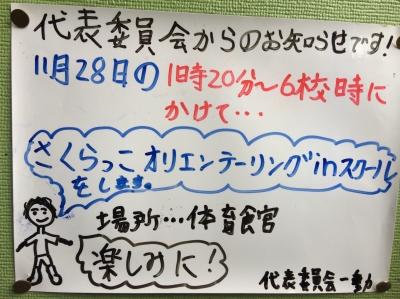 代表委員会からのお知らせです!
11月28日の1時20分〜6校時に
かけて・・・
さくらっこオリエンテーリングinスクール
をします。
場所・・・体育館
楽しみに!
代表委員会一動